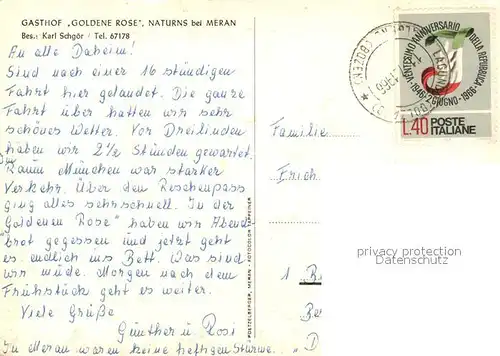 GASTHOF „GOLDENE ROSE", NATURNS bei MERAN
Bes.: Karl Schgör / Tel. 67178
An alle Daheim!
Sind nach einer 16 stündigen
Fahrt hier gelandet. Die ganze
Fahrt über hatten wir sehr
schönes Wetter. Vor Dreilinden
haben wir 2½ Stunden gewartet.
Raum München war starker
Verkehr. Über den Reschenpass
ging alles sehr schnell. In der
"Goldenen Rose" haben wir Abend-
brot gegessen und jetzt geht
es endlich ins Bett. Was sind
wir müde. Morgen nach dem
Frühstück geht es weiter.
Viele Grüße
Günther u. Rosi
In Meran waren keine heftigen Stürme.
POETZELBERGER, MERAN - FOTOCOLOR TAPPEINER
Familie
Erich
1 B
Be
"D
VENTESIMO ANNIVERSARIO DELLA REPUBBLICA
1946 · 2 GIUGNO · 1966
L.40 POSTE
ITALIANE
(BOZEN)
privacy protection
Datenschutz